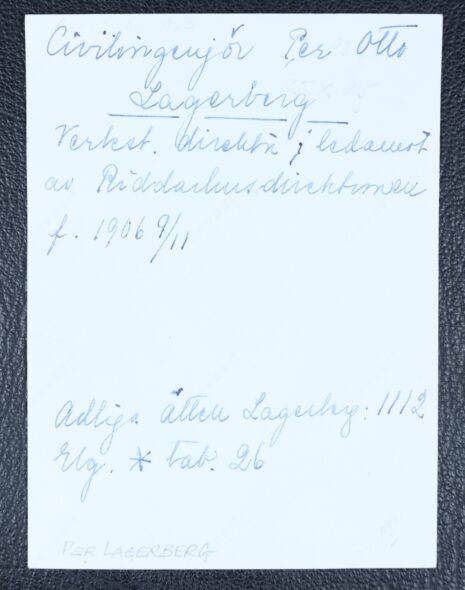 Civilingenjör Per Otto
Lagerberg
Verkst. direktör, ledamot
av Riddarhusdirektionen
f. 1906 9/11
Adliga ätten Lagerberg: 1112
Elg. * tab. 26
PER LAGERBERG